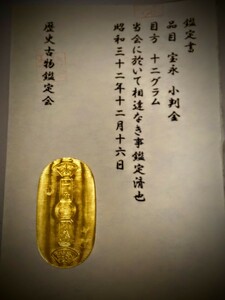 鑑定書
品目 宝永 小判金
目方 十二グラム
当会に於いて相違なき事鑑定済也
昭和三十二年十二月十六日
歴史古物鑑定会